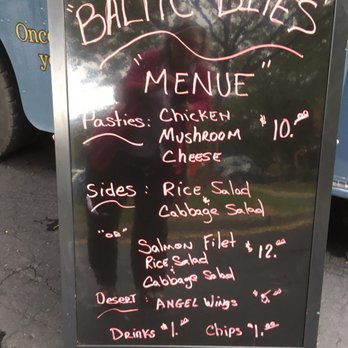 Once
y
"BALTIC BITES"
"MENUE"
Pasties: Chicken
Mushroom $10.00
Cheese
Sides: Rice Salad
Cabbage Salad
"OR"
Salmon Filet
Rice Salad $12.00
Cabbage Salad
Desert ANGEL Wings $5.00
Drinks $1.00 Chips $1.00